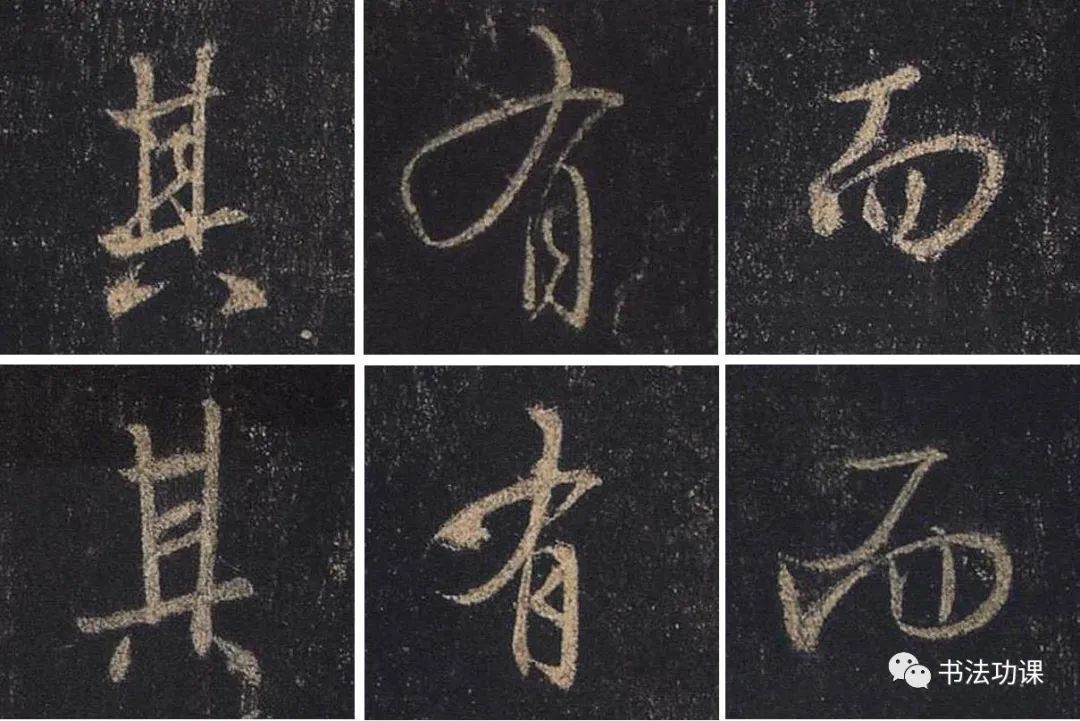 其有而
其有而
书法功课